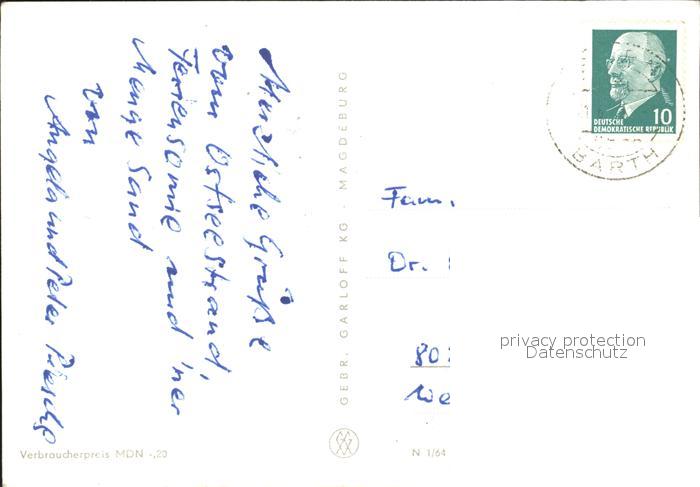 Herzliche Grüße
vom Ostseestrand,
Feriensonne und 'ner
Menge Sand
von
Angela und Peter
Verbraucherpreis MDN -,20
GEBR. GARLOFF KG · MAGDEBURG
N 1/64
DEUTSCHE
DEMOKRATISCHE REPUBLIK
10
BARTH
Fam.
Dr.
80
We
privacy protection
Datenschutz